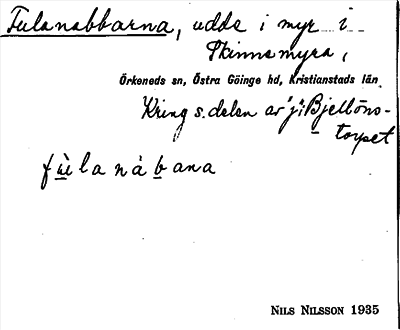 Fulanabbarna, udde i myr i
Skinnsmyra,
Örkeneds sn, Östra Göinge hd, Kristianstads län
Kring s. delen av "j": Bjellöns-
torpet
fùlanábana
NILS NILSSON 1935